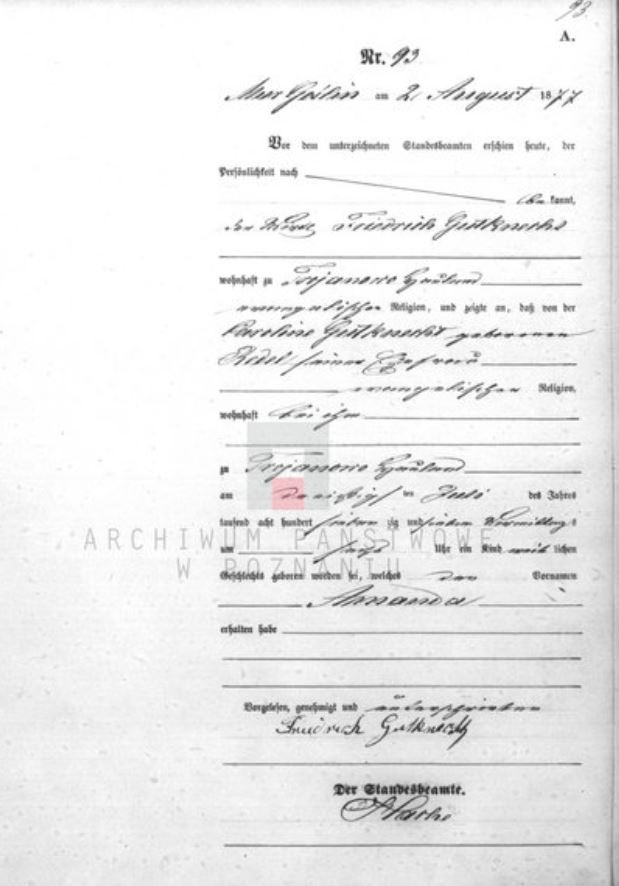 93.
A.
Nr. 93
Mur Goslin am 2. August 1877
Vor dem unterzeichneten Standesbeamten erschien heute, der
Persönlichkeit nach
be kannt,
der Friedrich Gutknecht
wohnhaft zu Trojanowo Hauland
evangelischer Religion, und zeigte an, daß von der
Caroline Gutknecht geborenen
seiner Ehefrau
evangelischer Religion,
wohnhaft bei ihm
zu Trojanowo Hauland
am dreißigsten Juli des Jahres
tausend acht hundert sieben zig und sieben Vormittags
um Uhr ein Kind weib lichen
Geschlechts geboren worden sei, welches den Vornamen
Amanda
erhalten habe
Vorgelesen, genehmigt und unterschrieben
Friedrich Gutknecht
Der Standesbeamte.
ARCHIWUM PAŃSTWOWE
W POZNANIU